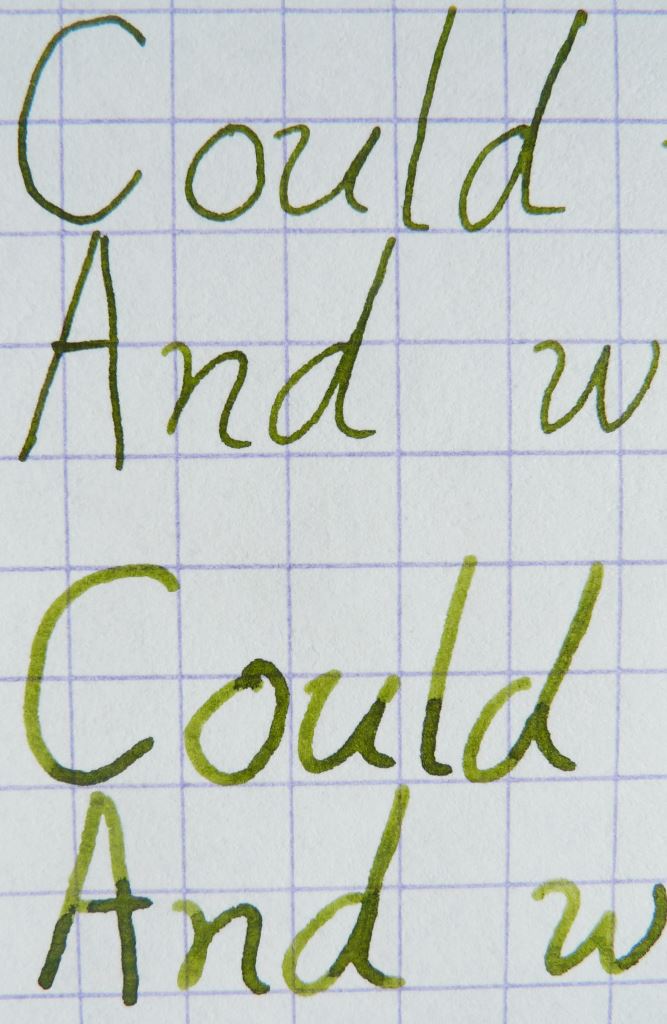 Could
And w
Could
And w